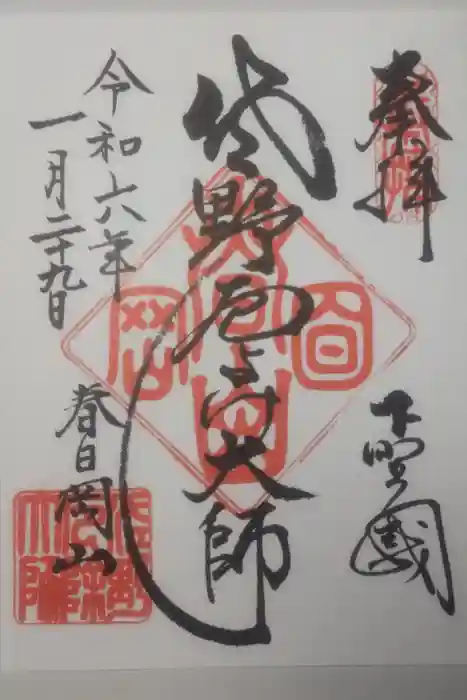 奉拝
下野國
佐野厄よけ大師
春日岡山
令和六年
一月二十九日